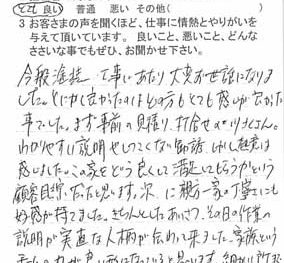 とても良い　普通　悪い　その他(　　　)
3 お客さまの声を聞くほど、仕事に情熱とやりがいを
与えて頂いています。良いこと、悪いこと、どんな
ささいな事でもぜひ、お聞かせ下さい。
今般塗装工事にあたり大変お世話になりま
した。とにかく良かったのはどの方もとても感じが良かった
事でした。まず事前の見積り、打合せの
わかりやすい説明やしつこくない
感じました。この家をどう良くして満足してもらうかという
顧客目線だったと思います。次に親方一家の丁寧さにも
好感が持てました。きちんとしたあいさつ、その日の作業の
説明が実直な人柄が伝わって来ました。家族という